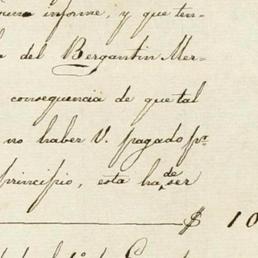 informe, y que ten-
del Bergantin Mer-
consequencia de que tal
no haber V. pagado pr.
principio, esta ha de ser
$ 10